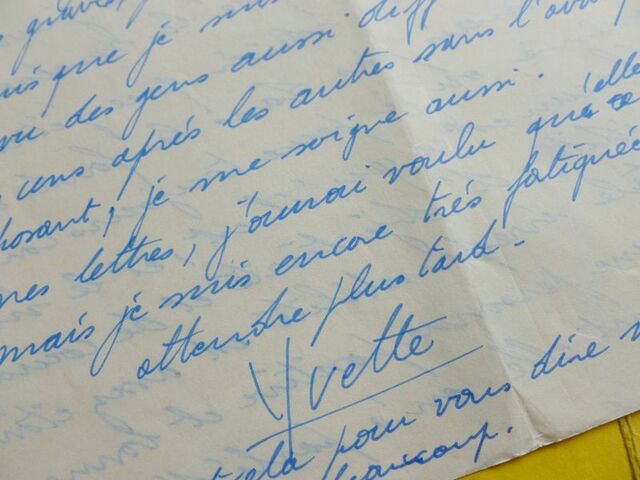 que je suis
vu des gens aussi diff
uns après les autres sans l'avo
posant, je me soigne aussi.
mes lettres, j'aurai voulu qu'elle
mais je suis encore très fatiguée
attendre plus tard -
Yvette
cela pour vous dire
beaucoup.